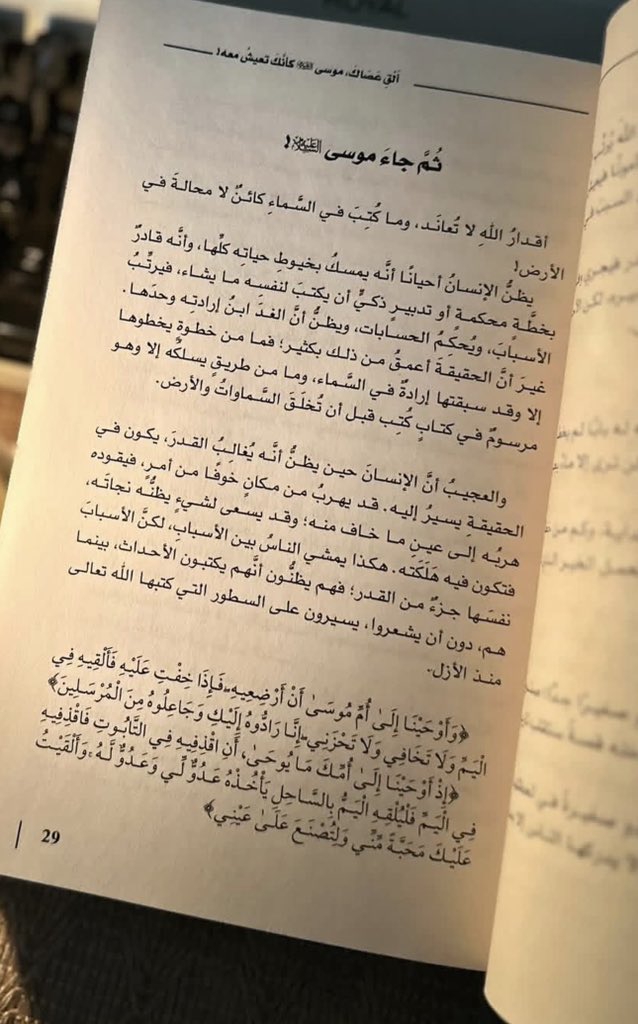 أَلْقِ عَصَاكَ، موسى ﷺ كأنَّكَ تعيشُ معه!
ثُمَّ جاءَ موسى عليه السلام!
أقدارُ اللهِ لا تُعانَد، وما كُتِبَ في السَّماءِ كائنٌ لا محالةَ في
الأرض!
يظنُّ الإنسانُ أحيانًا أنَّه يمسكُ بخيوطِ حياتِه كلِّها، وأنَّه قادرٌ
بخطَّةٍ محكمة أو تدبيرٍ ذكيٍّ أن يكتبَ لنفسه ما يشاء، فيرتِّبُ
الأسبابَ، ويُحكِمُ الحسابات، ويظنُّ أنَّ الغدَ ابنُ إرادتِه وحدَها.
غيرَ أنَّ الحقيقةَ أعمقُ من ذلك بكثير؛ فما من خطوةٍ يخطوها
إلا وقد سبقتها إرادةٌ في السَّماء، وما من طريقٍ يسلكُه إلا وهو
مرسومٌ في كتابٍ كُتِب قبل أن تُخلَقَ السَّماواتُ والأرض.
والعجيبُ أنَّ الإنسانَ حين يظنُّ أنَّه يُغالِبُ القدرَ، يكون في
الحقيقةِ يسيرُ إليه. قد يهربُ من مكانٍ خوفًا من أمرٍ، فيقوده
هربُه إلى عينِ ما خاف منه؛ وقد يسعى لشيءٍ يظنُّه نجاتَه،
فتكون فيه هَلَكَته. هكذا يمشي الناسُ بين الأسبابِ، لكنَّ الأسبابَ
نفسَها جزءٌ من القدر؛ فهم يظنُّون أنَّهم يكتبون الأحداث، بينما
هم، دون أن يشعروا، يسيرون على السطور التي كتبها الله تعالى
منذ الأزل.
﴿وَأَوْحَيْنَا إِلَىٰ أُمِّ مُوسَىٰ أَنْ أَرْضِعِيهِ ۖ فَإِذَا خِفْتِ عَلَيْهِ فَأَلْقِيهِ فِي
الْيَمِّ وَلَا تَخَافِي وَلَا تَحْزَنِي ۖ إِنَّا رَادُّوهُ إِلَيْكِ وَجَاعِلُوهُ مِنَ الْمُرْسَلِينَ﴾
﴿إِذْ أَوْحَيْنَا إِلَىٰ أُمِّكَ مَا يُوحَىٰ، أَنِ اقْذِفِيهِ فِي التَّابُوتِ فَاقْذِفِيهِ
فِي الْيَمِّ فَلْيُلْقِهِ الْيَمُّ بِالسَّاحِلِ يَأْخُذْهُ عَدُوٌّ لِّي وَعَدُوٌّ لَّهُ ۚ وَأَلْقَيْتُ
عَلَيْكَ مَحَبَّةً مِّنِّي وَلِتُصْنَعَ عَلَىٰ عَيْنِي﴾
29